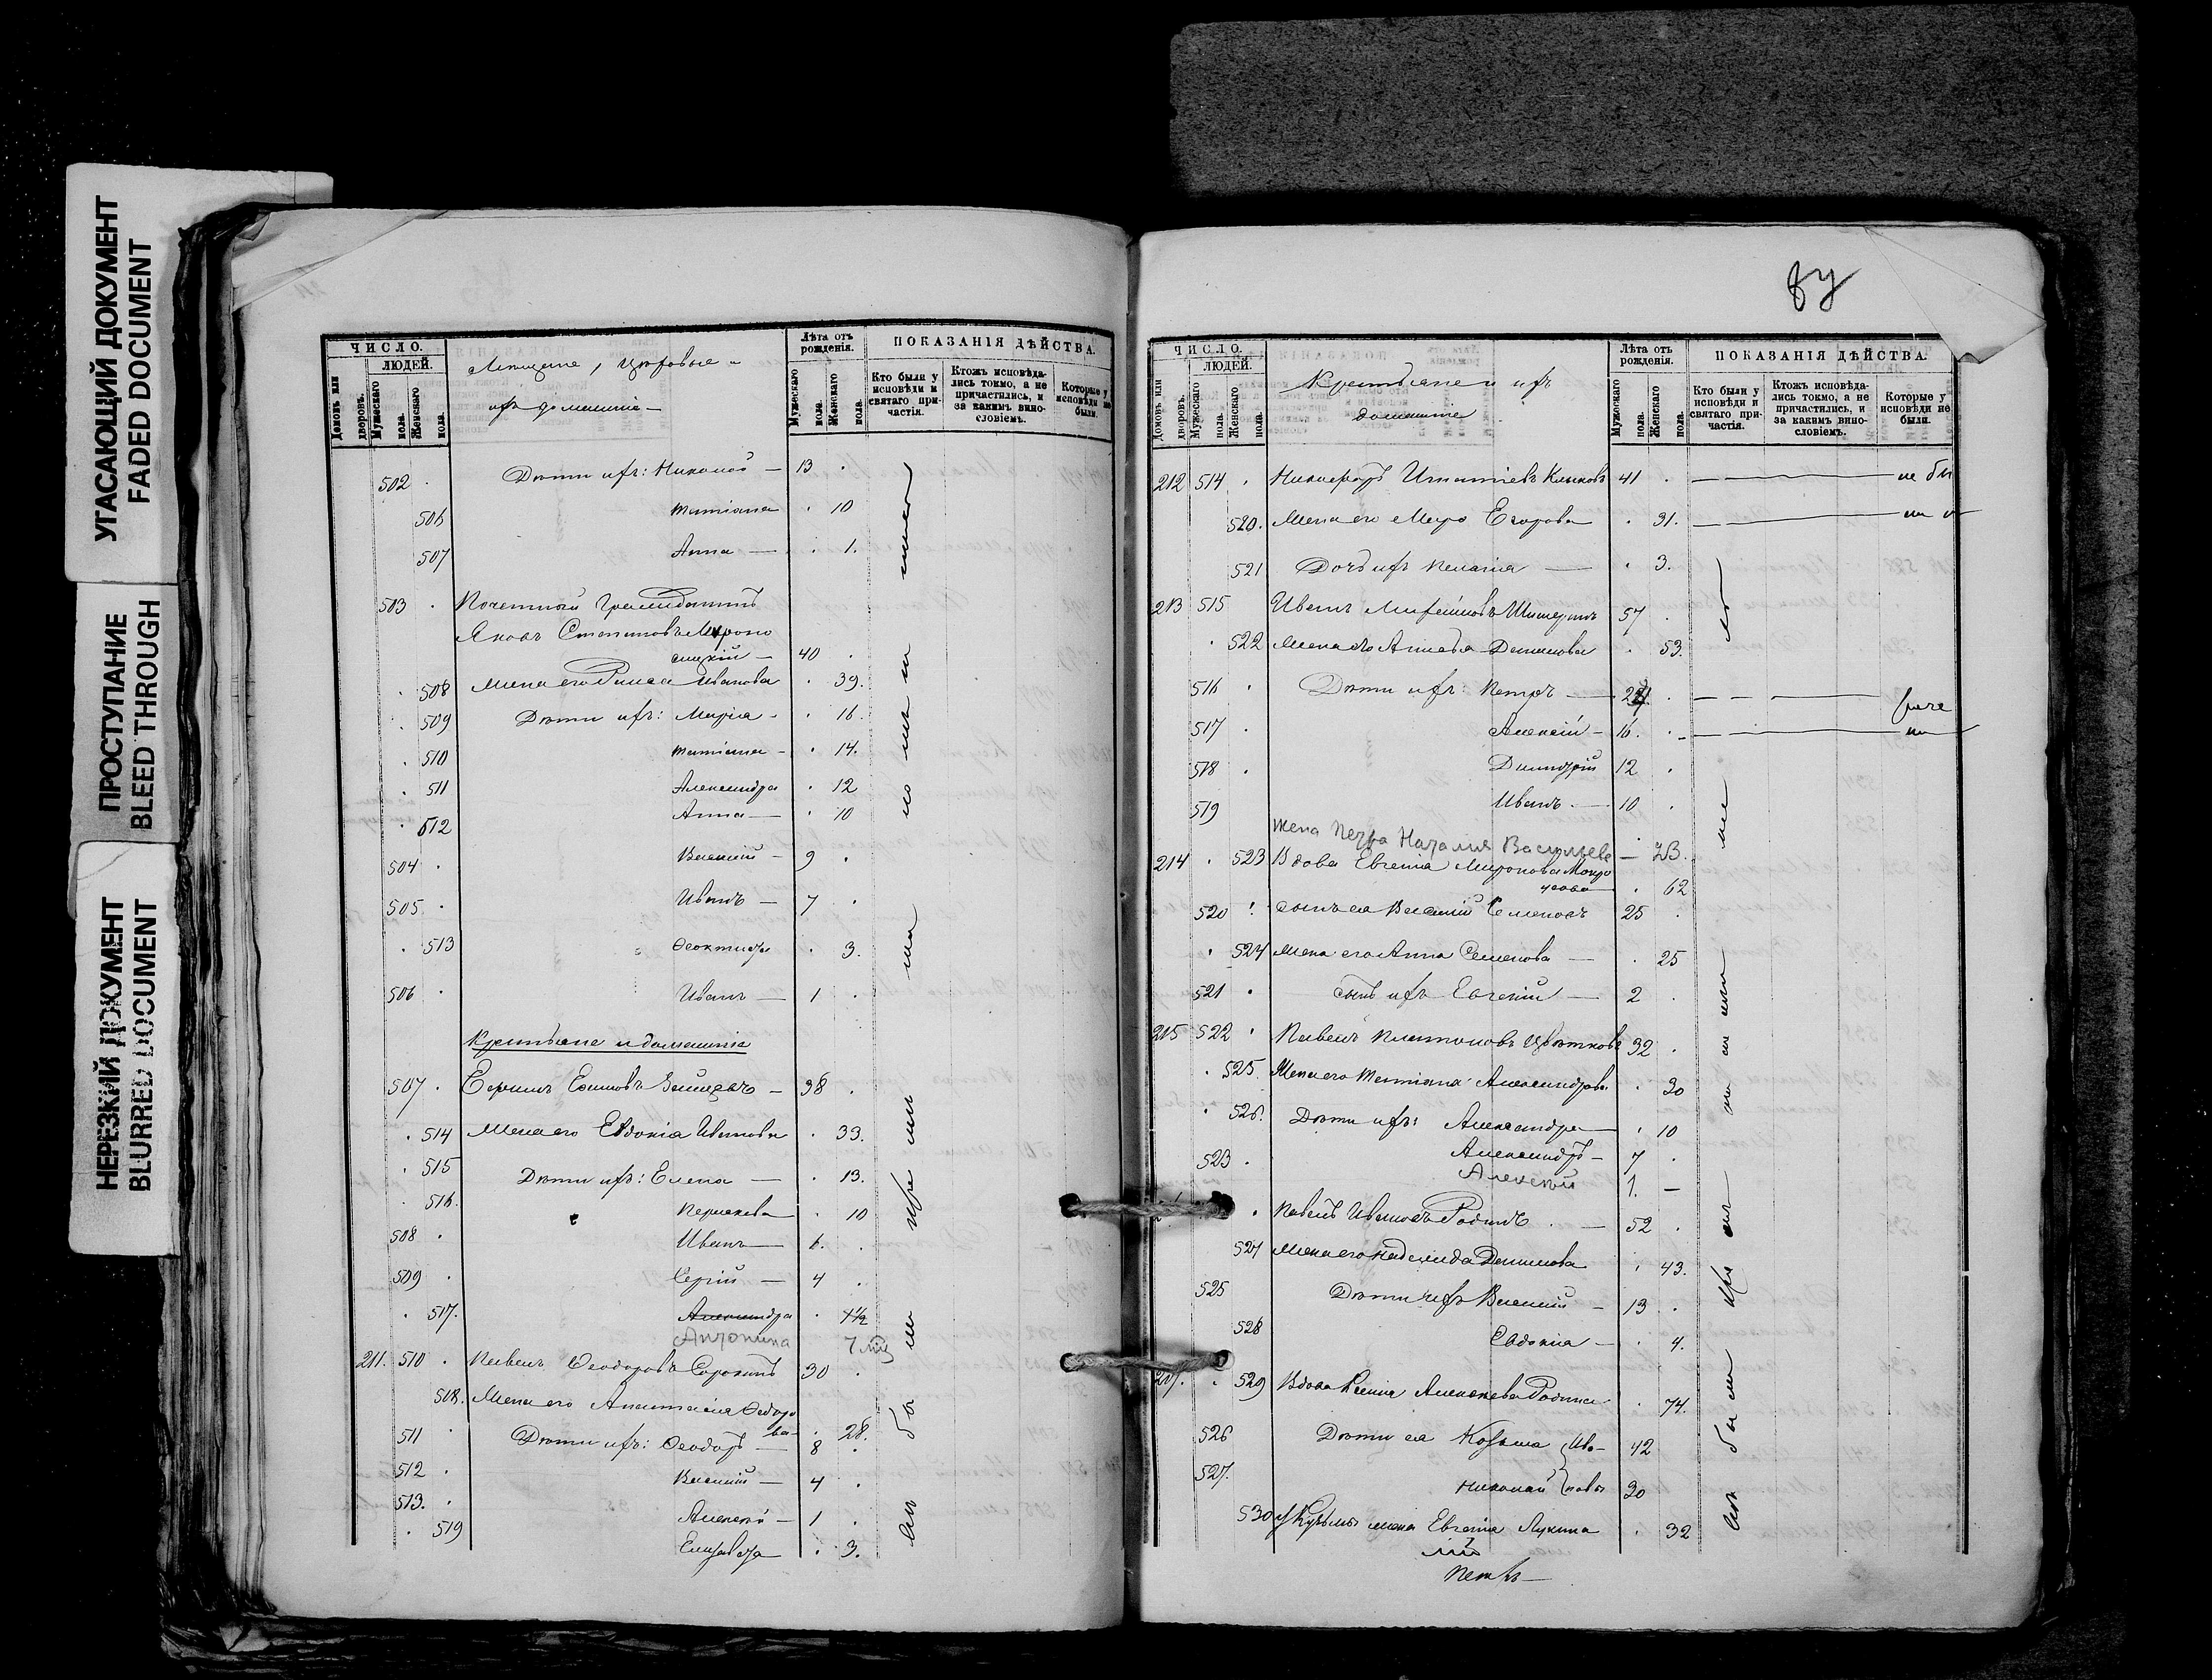 УГАСАЮЩИЙ ДОКУМЕНТ
FADED DOCUMENT
ПРОСТУПАНИЕ
BLEED THROUGH
НЕРЕЗКИЙ ДОКУМЕНТ
BLURRED DOCUMENT
ЧИСЛО.
ЛЮДЕЙ.
Домовъ или дворовъ.
Мужескаго пола.
Женскаго пола.
Мещане, цеховые и
ихъ домашніе
Лѣта отъ рожденія.
Мужескаго пола.
Женскаго пола.
ПОКАЗАНІЯ ДѢЙСТВА.
Кто были у исповѣди и святаго причастія.
Ктожъ исповѣдались токмо, а не причастились, и за какимъ винословіемъ.
Которые у исповѣди не были.
502 Дѣти ихъ: Николай — 13
506 Татіана 10
507 Анна — 1.
503 Почетный Гражданинъ
Яковъ Степановъ Мироно
сицкій — 40
508 Жена его Раиса Иванова 39.
509 Дѣти ихъ: Марія - 16.
510 Татіана - 14.
511 Александра 12
512 Анна — 10
504 Василій — 9
505 Иванъ — 7
513 Ѳеоктиста 3.
506 Иванъ — 1
Крестьяне и домашніе
507 Ефимовъ Зайцевъ — 38
514 Жена его Евдокія Иванова 33.
515 Дѣти ихъ: Елена — 13.
516. 10
508 Иванъ — 6.
509 Сергій — 4
517. Александра 1½
Антонина 7 мц
211. 510 Павелъ Ѳеодоровъ Сорокинъ 30
518. Жена его Анастасія Ѳедоро
ва- 28.
511 Дѣти ихъ: Ѳеодоръ — 8
512 Василій — 4
513. Алексѣй — 1
519 Елизавета 3.
87
ЧИСЛО.
ЛЮДЕЙ.
Домовъ или дворовъ.
Мужескаго пола.
Женскаго пола.
Крестьяне и ихъ
домашніе
Лѣта отъ рожденія.
Мужескаго пола.
Женскаго пола.
ПОКАЗАНІЯ ДѢЙСТВА.
Кто были у исповѣди и святаго причастія.
Ктожъ исповѣдались токмо, а не причастились, и за какимъ винословіемъ.
Которые у исповѣди не были.
212 514 Никифоръ Игнатіевъ Клыковъ 41 — не бы
520. Жена его Егорова 31.
521 Дочь ихъ Пелагія — 3.
213 515 Иванъ 57
522 Жена его Данилова 53.
516 Дѣти ихъ: Петръ —
517 Алексій — 16.
518 Димитрій 12
519 Иванъ. — 10
Жена Петра Наталия Васильева — 23.
214 523 Вдова Евгенія Миронова
62
520 Сынъ ея Василій Семеновъ 25
524 Жена его Анна Семенова — 25
521 Сынъ ихъ Евгеній — 2
215 522 Павелъ Платоновъ Цвѣтковъ 32
525. Жена его Татіана Александрова 30
526. Дѣти ихъ: Александра — 10
523 Александръ — 7
Алексѣй 1. —
Павелъ Ивановъ Родинъ — 52
527 Жена его Надежда Данилова 43.
525 Дѣти ихъ Василій — 13
528 Евдокіа — 4.
217. 529 Вдова Ксенія Алексѣева Родина 74.
526 Дѣти ея Козьма Ива- 42
527. Николай новы 30
530 У Кузьмы жена Евгенія Лукина 32